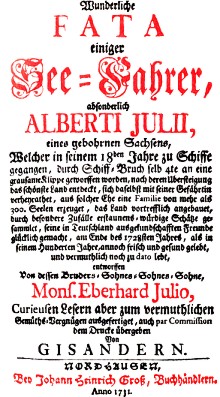 Wunderliche
FATA
einiger
See-Fahrer,
absonderlich
ALBERTI JULII,
eines gebohrnen Sachsens,
Welcher in seinem 18den Jahre zu Schiffe
gegangen, durch Schiff-Bruch selb 4te an eine
grausame Klippe geworffen worden, nach deren Übersteigung
das schönste Land entdeckt, sich daselbst mit seiner Gefährtin
verheyrathet, aus solcher Ehe eine Familie von mehr als
300. Seelen erzeuget, das Land vortrefflich angebauet,
durch besondere Zufälle erstaunens-würdige Schätze ge-
sammlet, seine in Teutschland ausgekundschafften Freunde
glücklich gemacht, am Ende des 1728sten Jahres, als in
seinem Hunderten Jahre, annoch frisch und gesund gelebt,
und vermuthlich noch zu dato lebt,
entworffen
Von dessen Bruders-Sohnes-Sohnes-Sohne,
Mons. Eberhard Julio,
Curieusen Lesern aber zum vermuthlichen
Gemüths-Vergnügen ausgefertiget, auch par Commission
dem Drucke übergeben
Von
GISANDERN.
NORDHAUSEN,
Bey Johann Heinrich Groß, Buchhändlern.
Anno 1731.